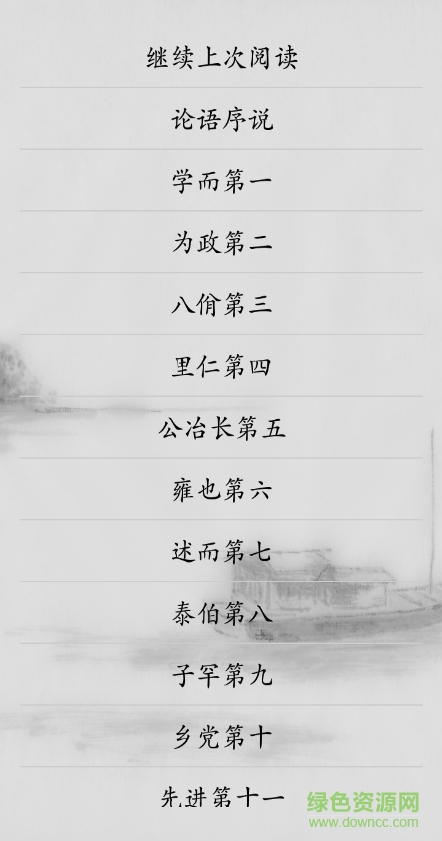 继续上次阅读
论语序说
学而第一
为政第二
八佾第三
里仁第四
公冶长第五
雍也第六
述而第七
泰伯第八
子罕第九
乡党第十
先进第十一
绿色资源网
www.downcc.com